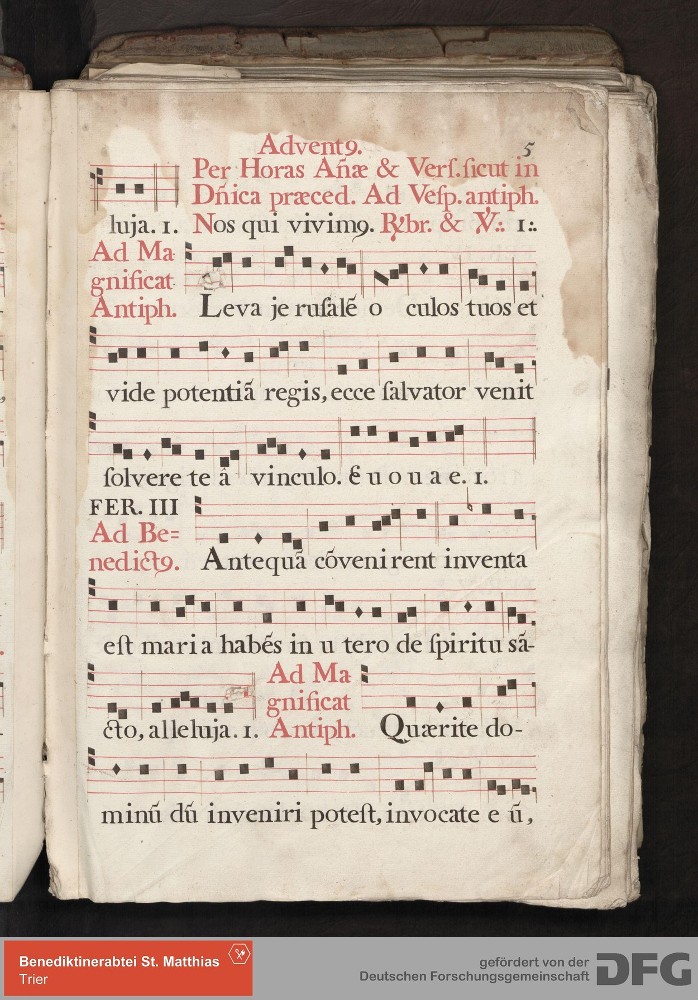 Advent9.
5
Per Horas Añæ & Verſ. ſicut in
Dñica præced. Ad Veſp. antiph.
luja. 1. Nos qui vivim9. R̷br. & V̷.: 1:.
Ad Ma
gnificat
Antiph. Leva je ruſalē o culos tuos et
vide potentiā regis, ecce ſalvator venit
ſolvere te â vinculo. E u o u a e. 1.
FER. III
Ad Be=
nedict9. Antequā cōvenirent inventa
eſt maria habēs in u tero de ſpiritu sā-
cto, alleluja. 1. Ad Ma
gnificat
Antiph. Quærite do-
minū dū inveniri poteſt, invocate e ū,
Benediktinerabtei St. Matthias
Trier
gefördert von der
Deutschen Forschungsgemeinschaft
DFG